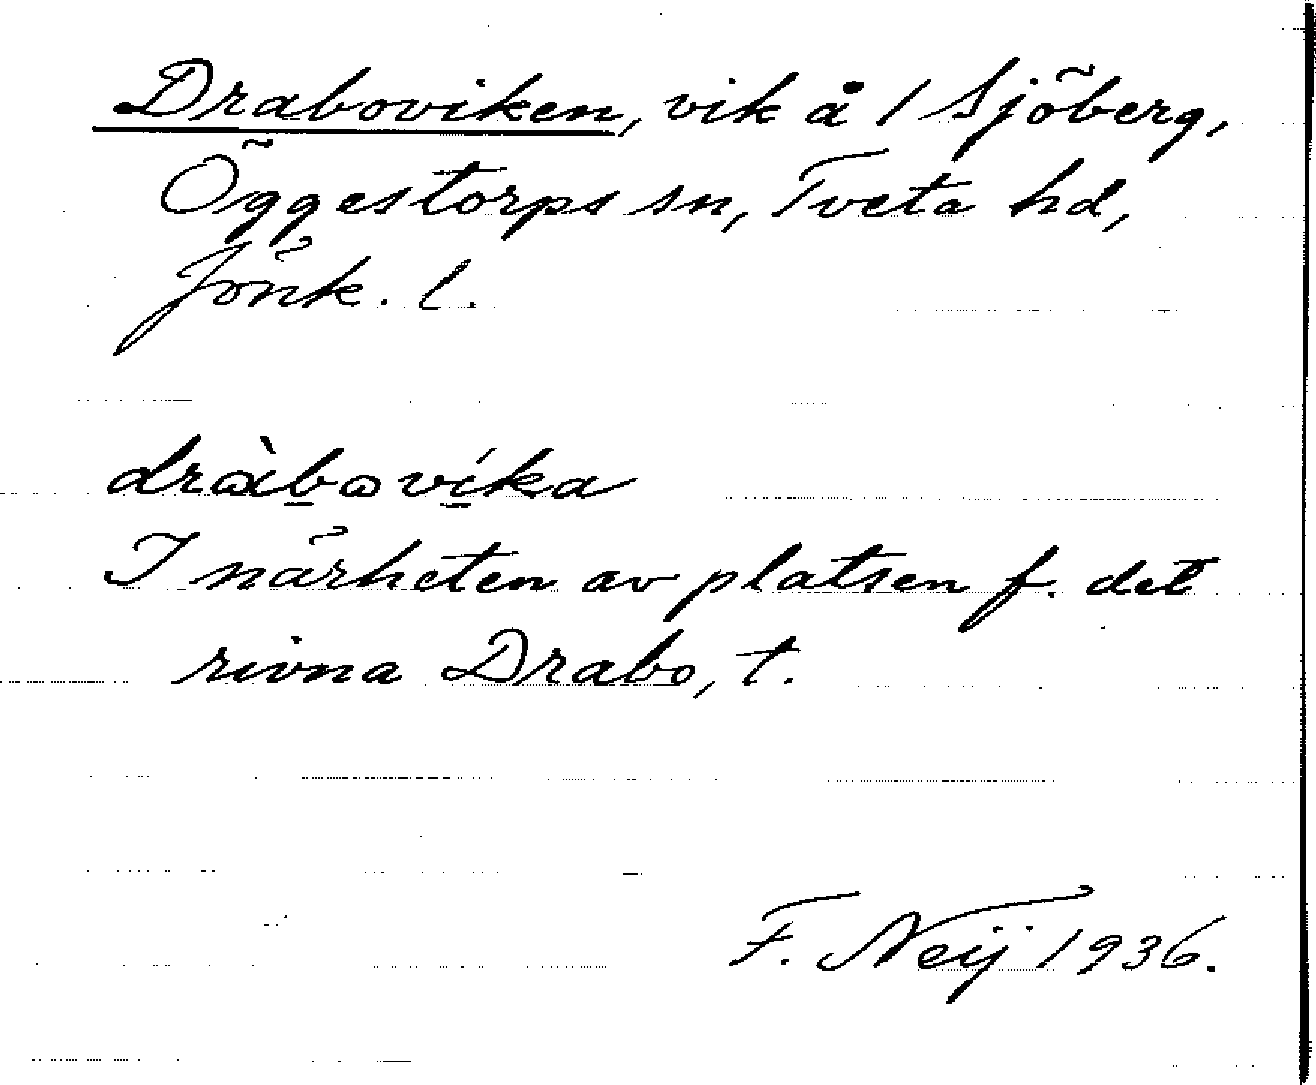 Draboviken, vik å 1 Sjöberg,
Öggestorps sn, Tveta hd,
Jönk. l.
dràbovíka
I närheten av platsen f. det
rivna Drabo, t.
F. Neij 1936.